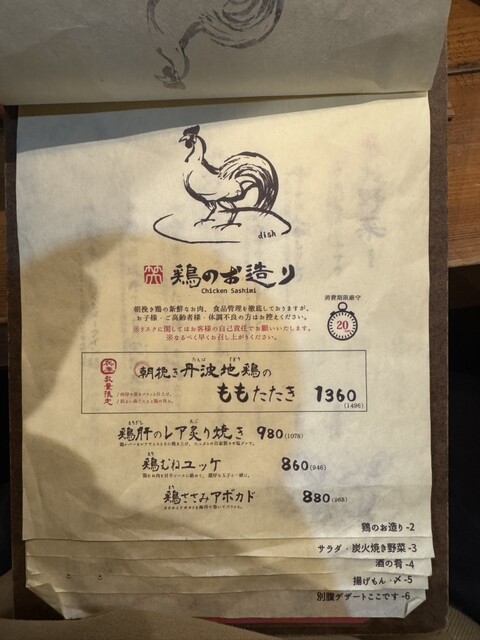 dish
鶏のお造り
Chicken Sashimi
朝挽き鶏の新鮮なお肉、食品管理を徹底しておりますが、
お子様・ご高齢者様・体調不良の方はお控えください。
※リスクに関してはお客様の自己責任でお願いいたします。
※なるべく早くお召し上がりください。
消費期限厳守
20
数量限定
朝挽き丹波地鶏の
ももたたき 1360
(1496)
鶏肝のレア炙り焼き 980(1078)
鶏むねユッケ 860(946)
鶏ささみアボカド 880(968)
鶏のお造り-2
サラダ・炭火焼き野菜-3
酒の肴-4
揚げもん・〆-5
別腹デザートここです-6